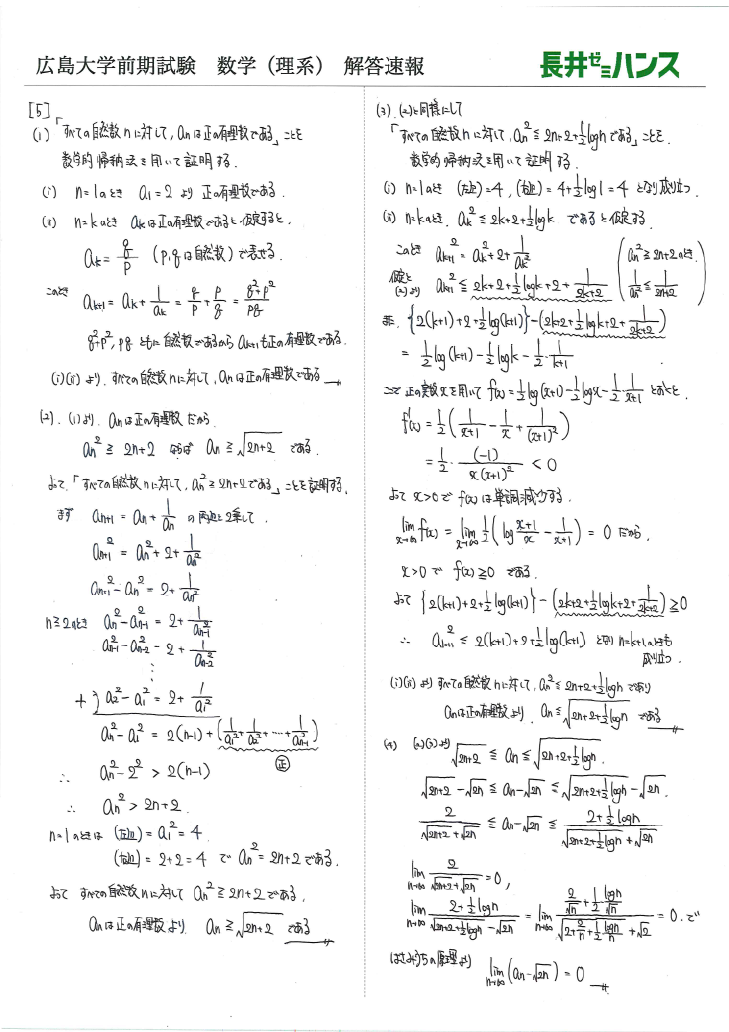 広島大学前期試験 数学（理系） 解答速報
長井ゼミハンス
[5]
(1)「すべての自然数nに対して, anは正の有理数である」ことを
数学的帰納法を用いて証明する.
(i) n=1のとき a1=2 より 正の有理数である.
(ii) n=kのとき akは正の有理数であると仮定すると,
ak = q/p (p,qは自然数) で表せる.
このとき ak+1 = ak + 1/ak = q/p + p/q = (q²+p²)/pq
q²+p², pq ともに自然数であるから ak+1も正の有理数である.
(i)(ii)より, すべての自然数nに対して, anは正の有理数である
(2). (1)より, anは正の有理数だから
an² ≧ 2n+2 ならば an ≧ √(2n+2) である.
よって,「すべての自然数nに対して, an² ≧ 2n+2である」ことを証明する.
まず an+1 = an + 1/an の両辺を2乗して,
an+1² = an² + 2 + 1/an²
an+1² - an² = 2 + 1/an²
n≧2のとき an² - an-1² = 2 + 1/an-1²
an-1² - an-2² = 2 + 1/an-2²
⋮
+) a2² - a1² = 2 + 1/a1²
an² - a1² = 2(n-1) + (1/a1² + 1/a2² + … + 1/an-1²)
正
∴ an² - 2² > 2(n-1)
∴ an² > 2n+2.
n=1のときは (左辺) = a1² = 4
(右辺) = 2+2 = 4 で an² = 2n+2である.
よって すべての自然数nに対して an² ≧ 2n+2である.
anは正の有理数より, an ≧ √(2n+2) である
(3). (2)と同様にして
「すべての自然数nに対して, an² ≦ 2n+2+½logn である」ことを.
数学的帰納法を用いて証明する.
(i) n=1のとき (左辺)=4, (右辺) = 4+½log1 = 4 となり成り立つ.
(ii) n=kのとき, ak² ≦ 2k+2+½logk であると仮定する.
このとき ak+1² = ak² + 2 + 1/ak²
(an² ≧ 2n+2のとき. 1/an² ≦ 1/(2n+2))
仮定と(2)より ak+1² ≦ 2k+2+½logk+2+1/(2k+2)
{2(k+1)+2+½log(k+1)} - (2k+2+½logk+2+1/(2k+2))
= ½log(k+1) - ½logk - ½・1/(k+1)
ここで 正の実数xを用いて f(x) = ½log(x+1) - ½logx - ½・1/(x+1) とおくと,
f'(x) = ½(1/(x+1) - 1/x + 1/(x+1)²)
= ½・(-1)/(x(x+1)²) < 0
よって x>0で f(x)は単調減少する.
lim x→∞ f(x) = lim x→∞ ½(log (x+1)/x - 1/(x+1)) = 0 だから,
x>0 で f(x)≧0 である.
よって {2(k+1)+2+½log(k+1)} - (2k+2+½logk+2+1/(2k+2)) ≧0
∴ ak+1² ≦ 2(k+1)+2+½log(k+1) となり n=k+1のときも
成り立つ.
(i)(ii)より すべての自然数nに対して, an² ≦ 2n+2+½logn であり
anは正の有理数より, an ≦ √(2n+2+½logn) である
(4) (2)(3)より √(2n+2) ≦ an ≦ √(2n+2+½logn).
√(2n+2) - √2n ≦ an - √2n ≦ √(2n+2+½logn) - √2n.
2/(√(2n+2)+√2n) ≦ an - √2n ≦ (2+½logn)/(√(2n+2+½logn)+√2n)
lim n→∞ 2/(√(2n+2)+√2n) = 0,
lim n→∞ (2+½logn)/(√(2n+2+½logn)-√2n) = lim n→∞ (2/√n+½ logn/√n)/(√(2+2/n+½ logn/n)+√2) = 0. で
はさみうちの原理より lim n→∞ (an-√2n) = 0